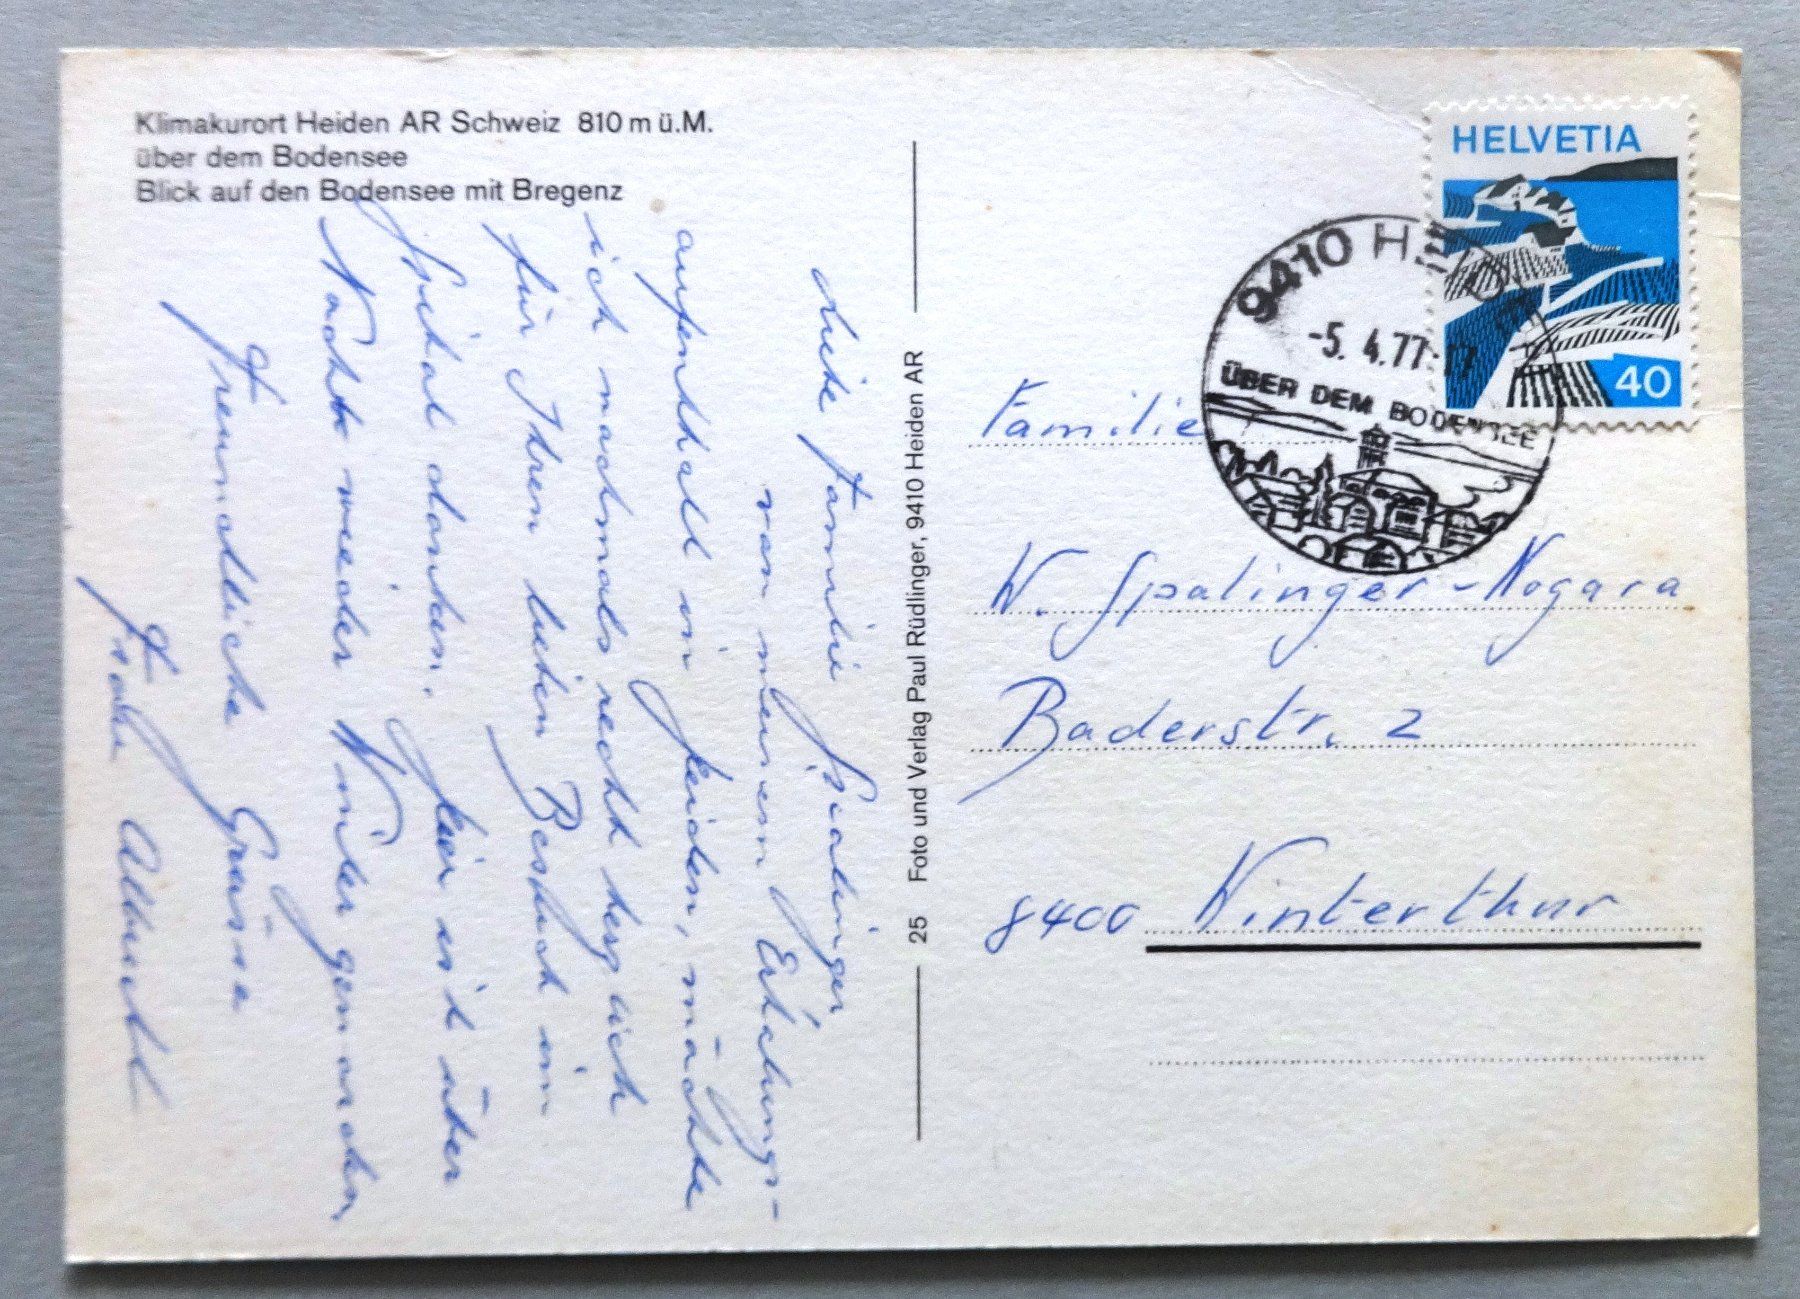 Klimakurort Heiden AR Schweiz 810 m ü.M.
über dem Bodensee
Blick auf den Bodensee mit Bregenz
Liebe Familie Spalinger
von meinem Erholungs-
aufenthalt in Heiden, möchte
ich nochmals recht herzlich
für Ihren lieben Besuch im
Spital danken. Hier ist über
Nacht wieder Winter geworden
Freundliche Grüsse
25 Foto und Verlag Paul Rüdlinger, 9410 Heiden AR
HELVETIA
40
9410 HEIDEN
-5. 4.77
ÜBER DEM BODENSEE
Familie
W. Spalinger-Nogara
Baderstr. 2
8400 Winterthur